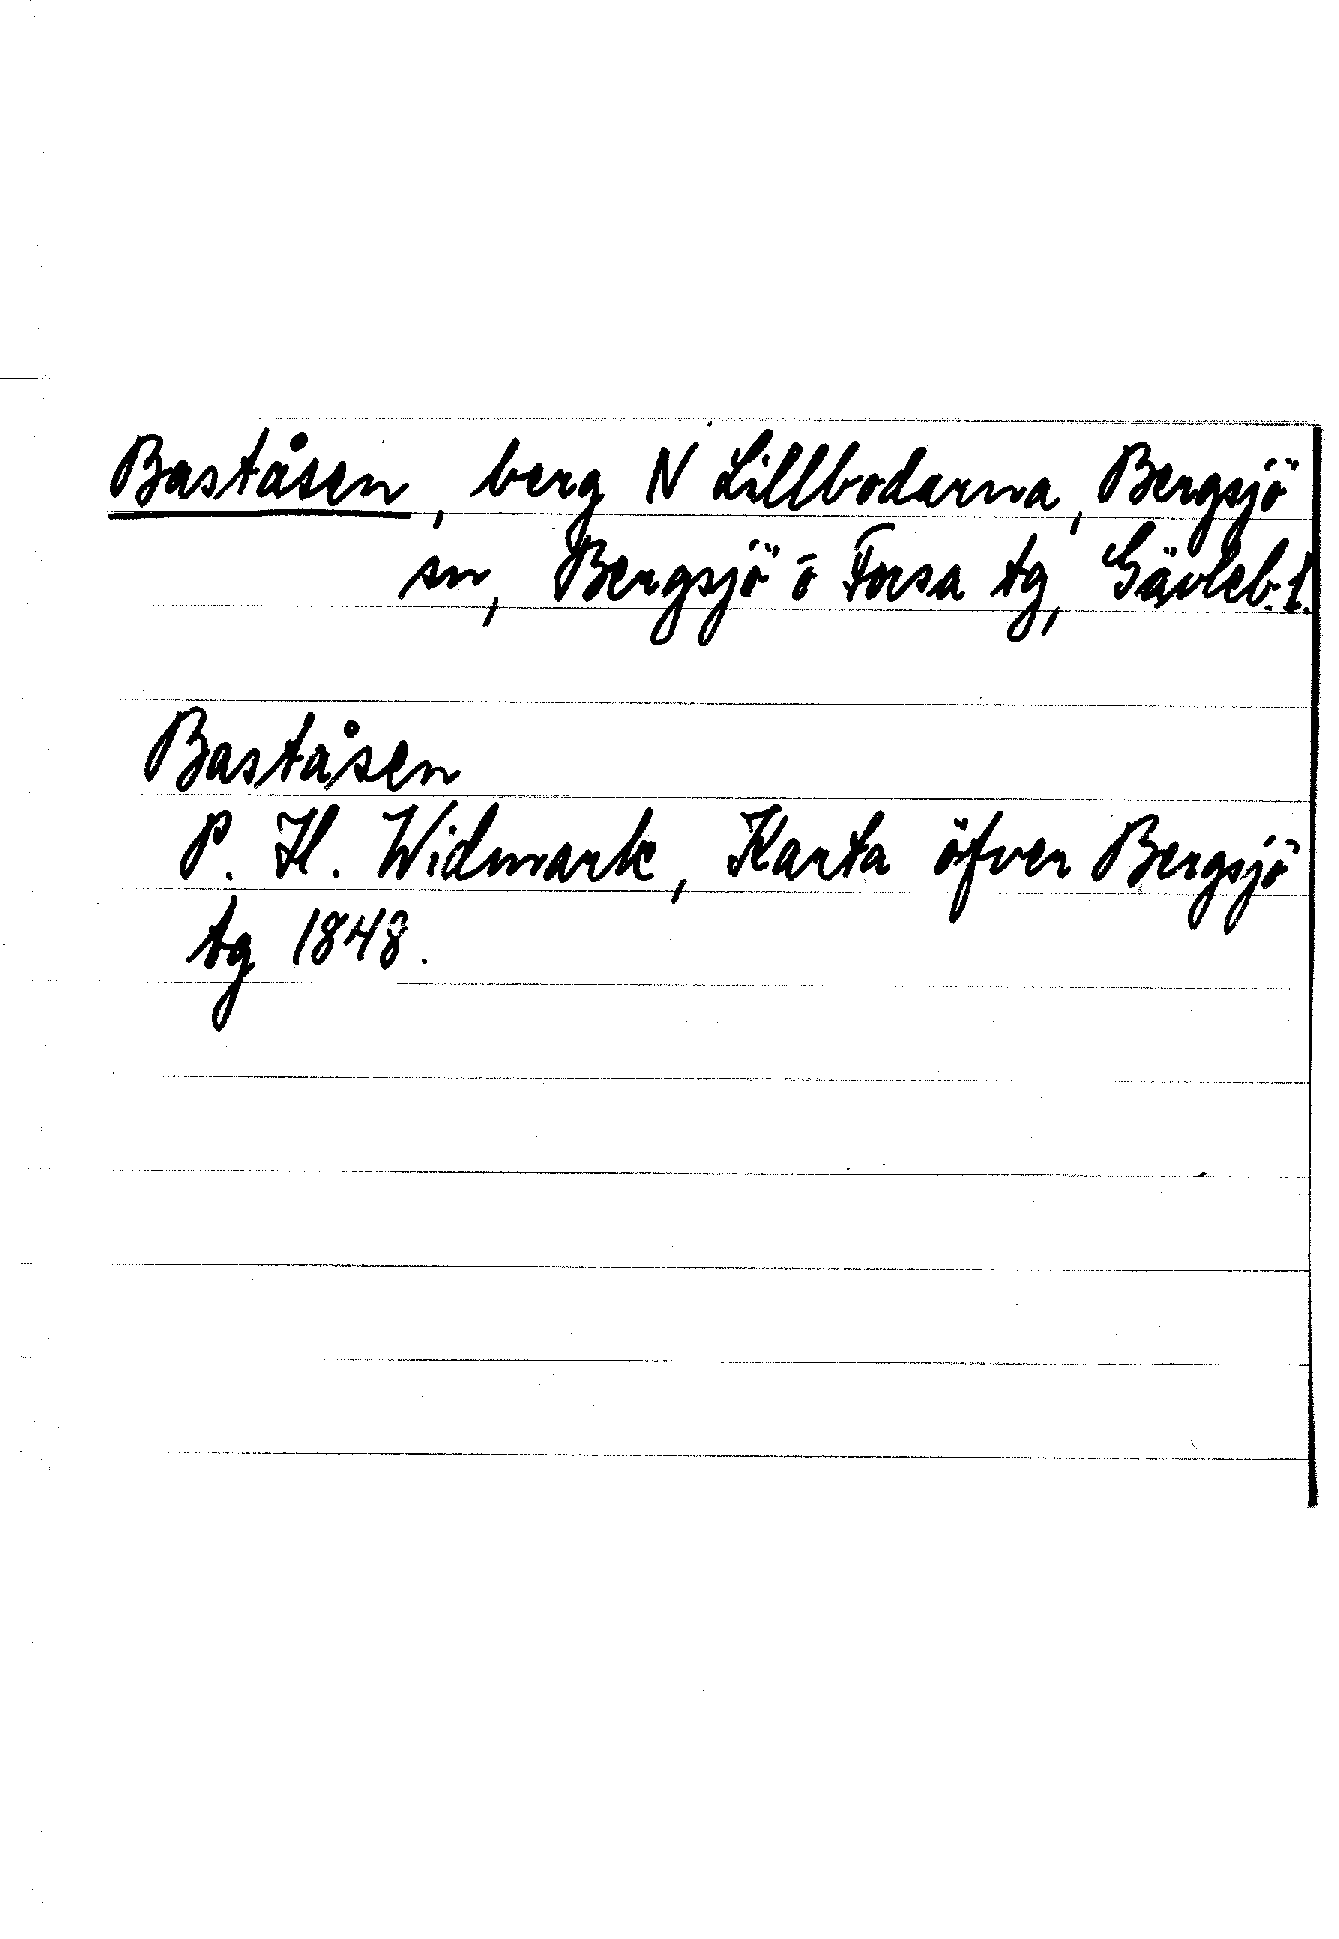 Baståsen, berg N Lillbodarna, Bergsjö
sn, Bergsjö o Forsa tg, Gävleb. l.
Baståsen
P. H. Widmark, Karta öfver Bergsjö
tg 1848.